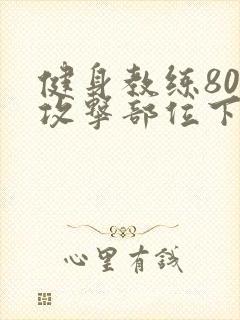 健身教练80
攻擊部位下
心里有钱